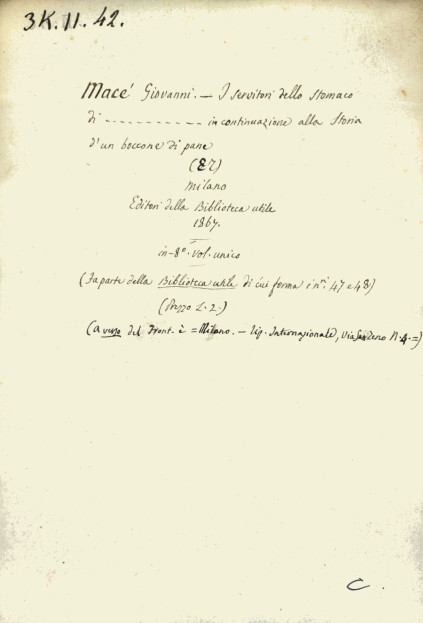 3K.11.42.
Macé Giovanni. — I servitori dello Stomaco
di - - - - - - - - - - - - in continuazione alla Storia
d'un boccone di pane
Milano
Editori della Biblioteca utile
1867.
in-8º. vol. unico
(Fa parte della Biblioteca utile di cui forma i nⁱ. 47 e 48)
(Prezzo L. 2.)
(a verso del Front. è = Milano. — Tip. Internazionale, Via N. 4. =)
C.